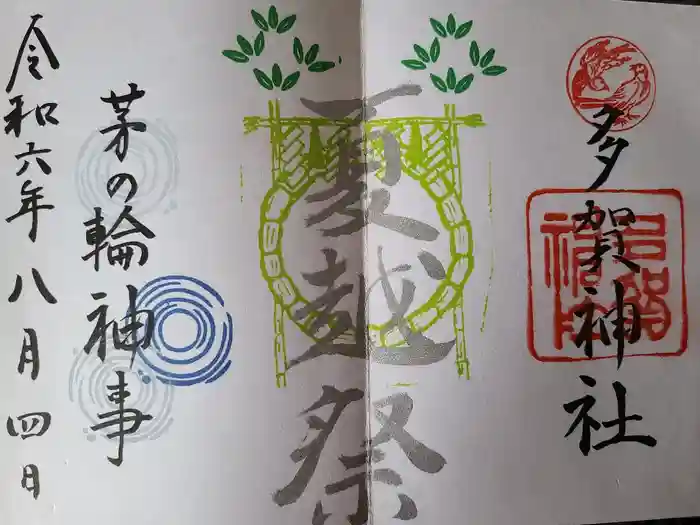 多賀神社
夏越祭
茅の輪神事
令和六年八月四日